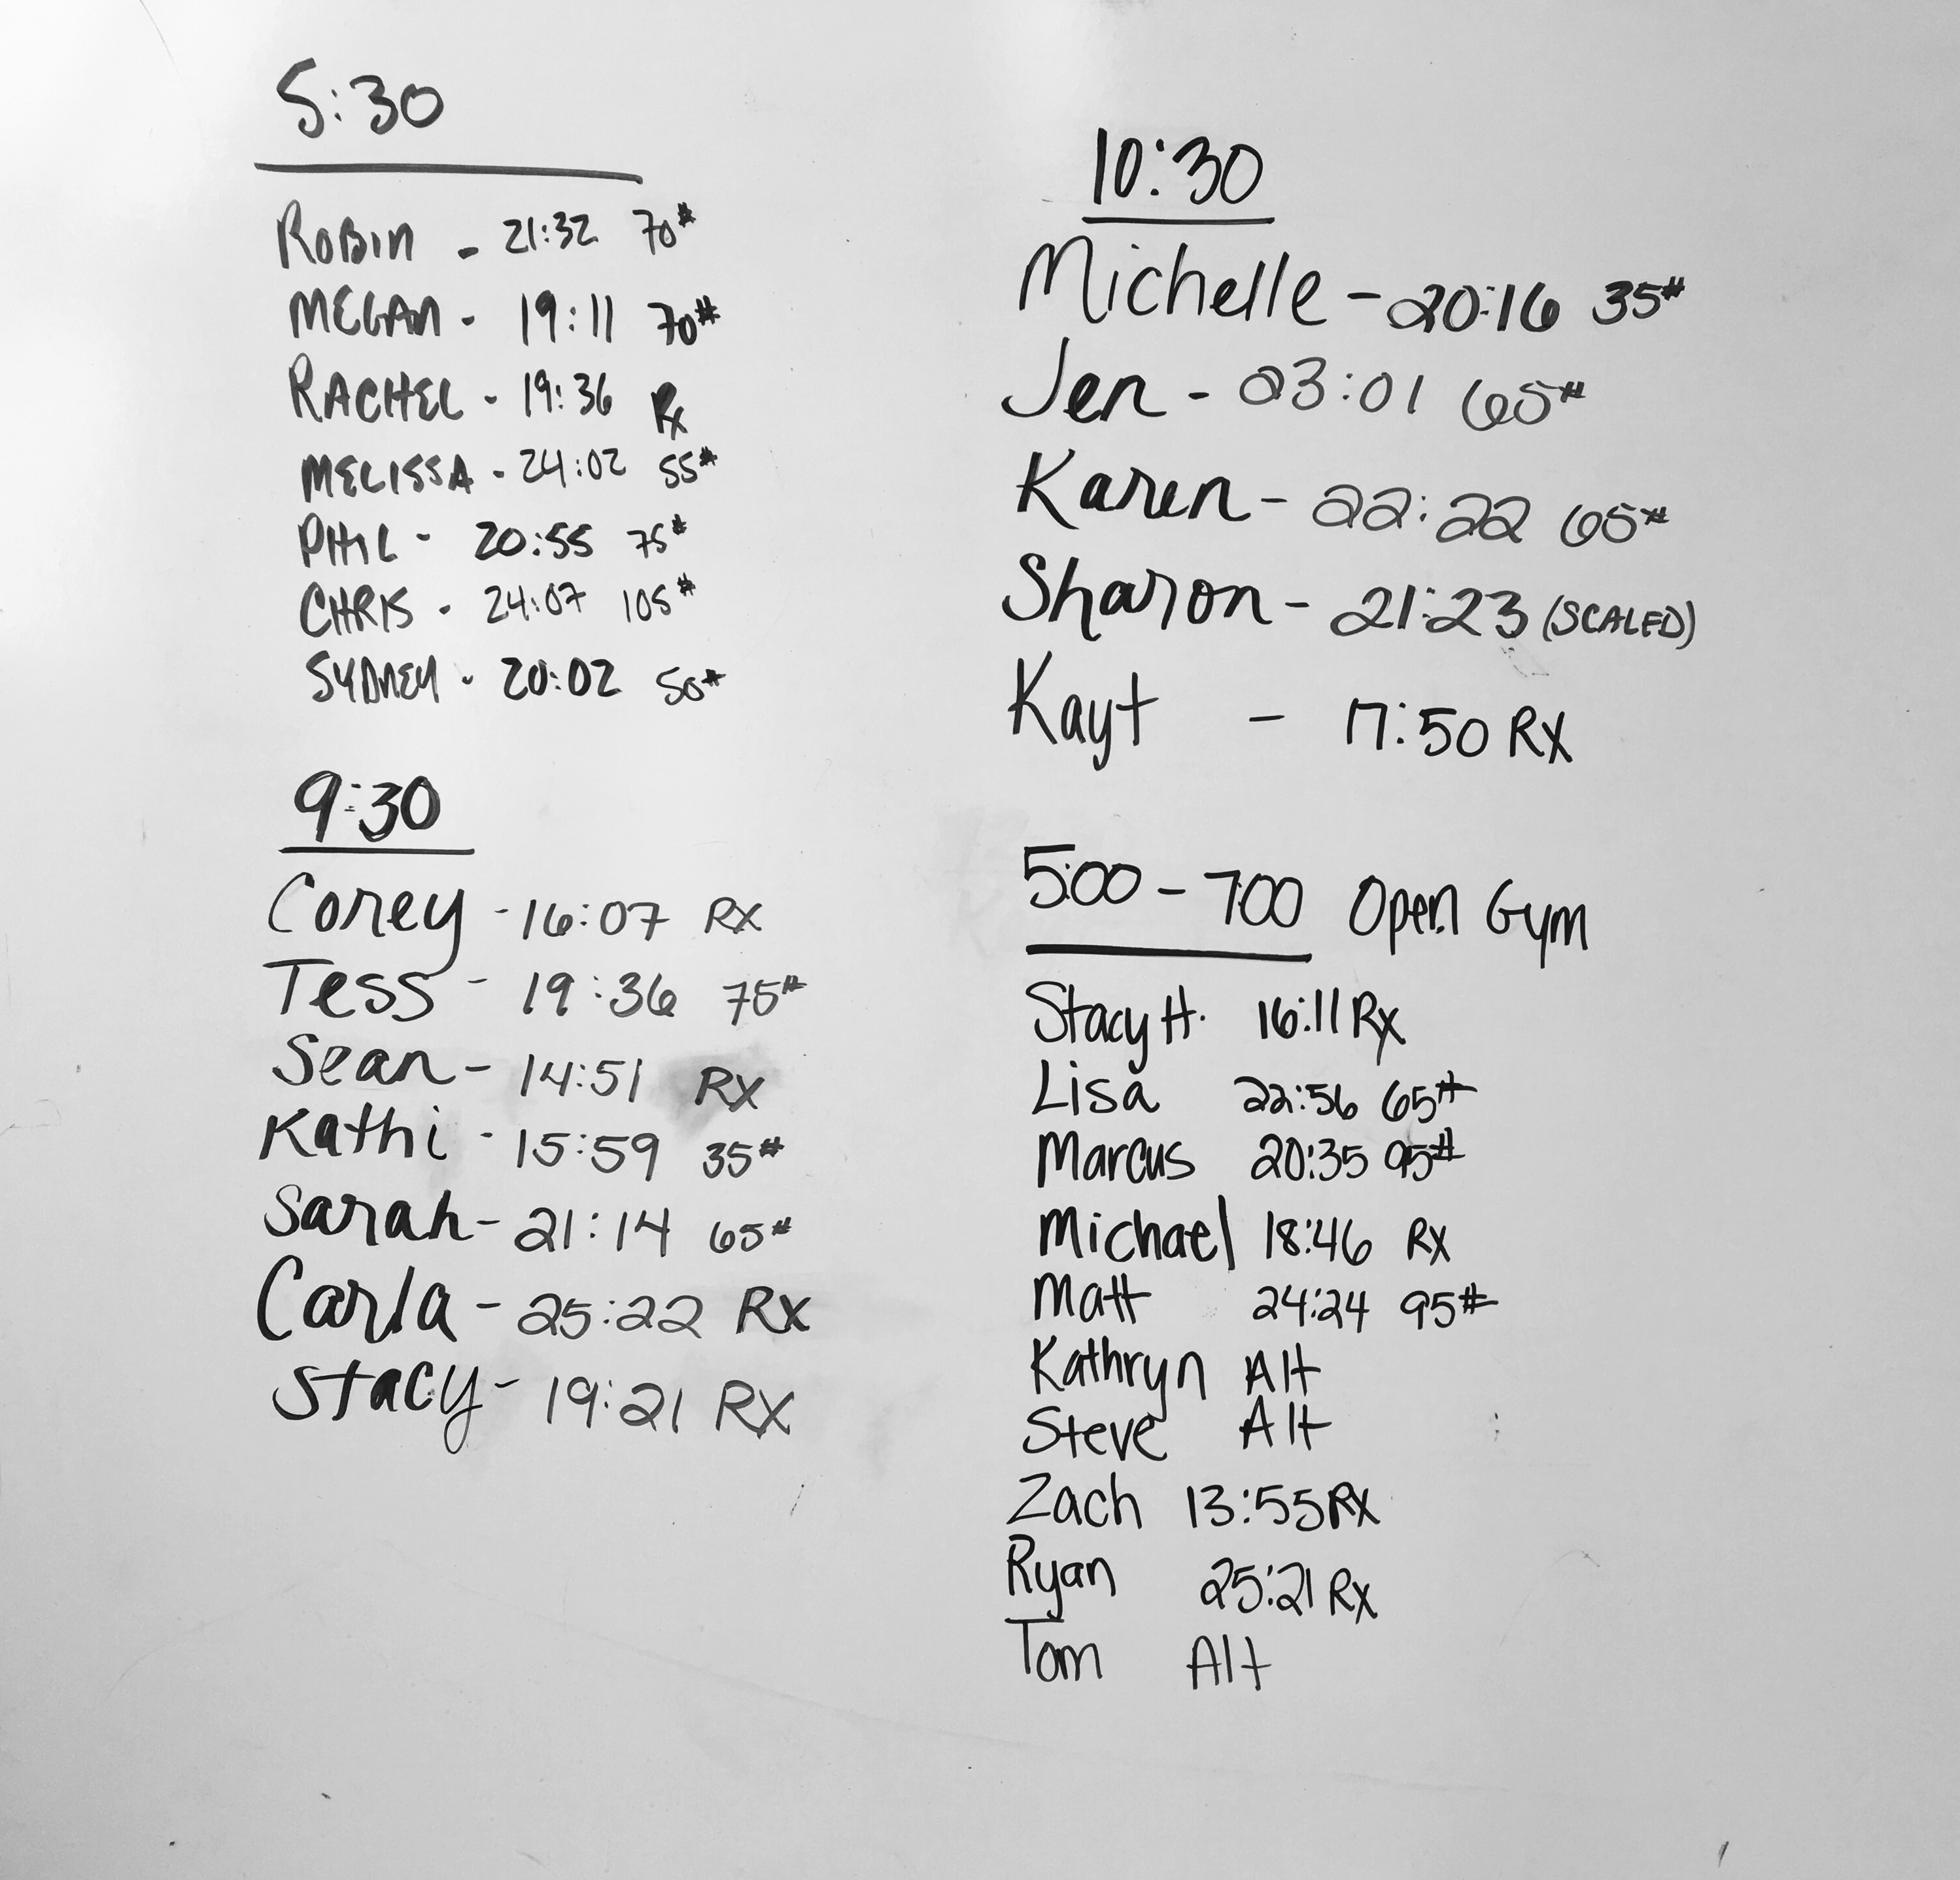 5:30
ROBIN - 21:32 70#
MEGAN - 19:11 70#
RACHEL - 19:36 Rx
MELISSA - 24:02 55#
PHIL - 20:55 75#
CHRIS - 24:07 105#
SYDNEY - 20:02 50#
9:30
Corey - 16:07 RX
Tess - 19:36 75#
Sean - 14:51 RX
Kathi - 15:59 35#
Sarah - 21:14 65#
Carla - 25:22 RX
Stacy - 19:21 RX
10:30
Michelle - 20:16 35#
Jen - 23:01 65#
Karen - 22:22 65#
Sharon - 21:23 (SCALED)
Kayt - 17:50 RX
5:00 - 7:00 Open Gym
Stacy H. 16:11 Rx
Lisa 22:56 65#
Marcus 20:35 95#
Michael 18:46 Rx
Matt 24:24 95#
Kathryn Alt
Steve Alt
Zach 13:55 Rx
Ryan 25:21 Rx
Tom Alt